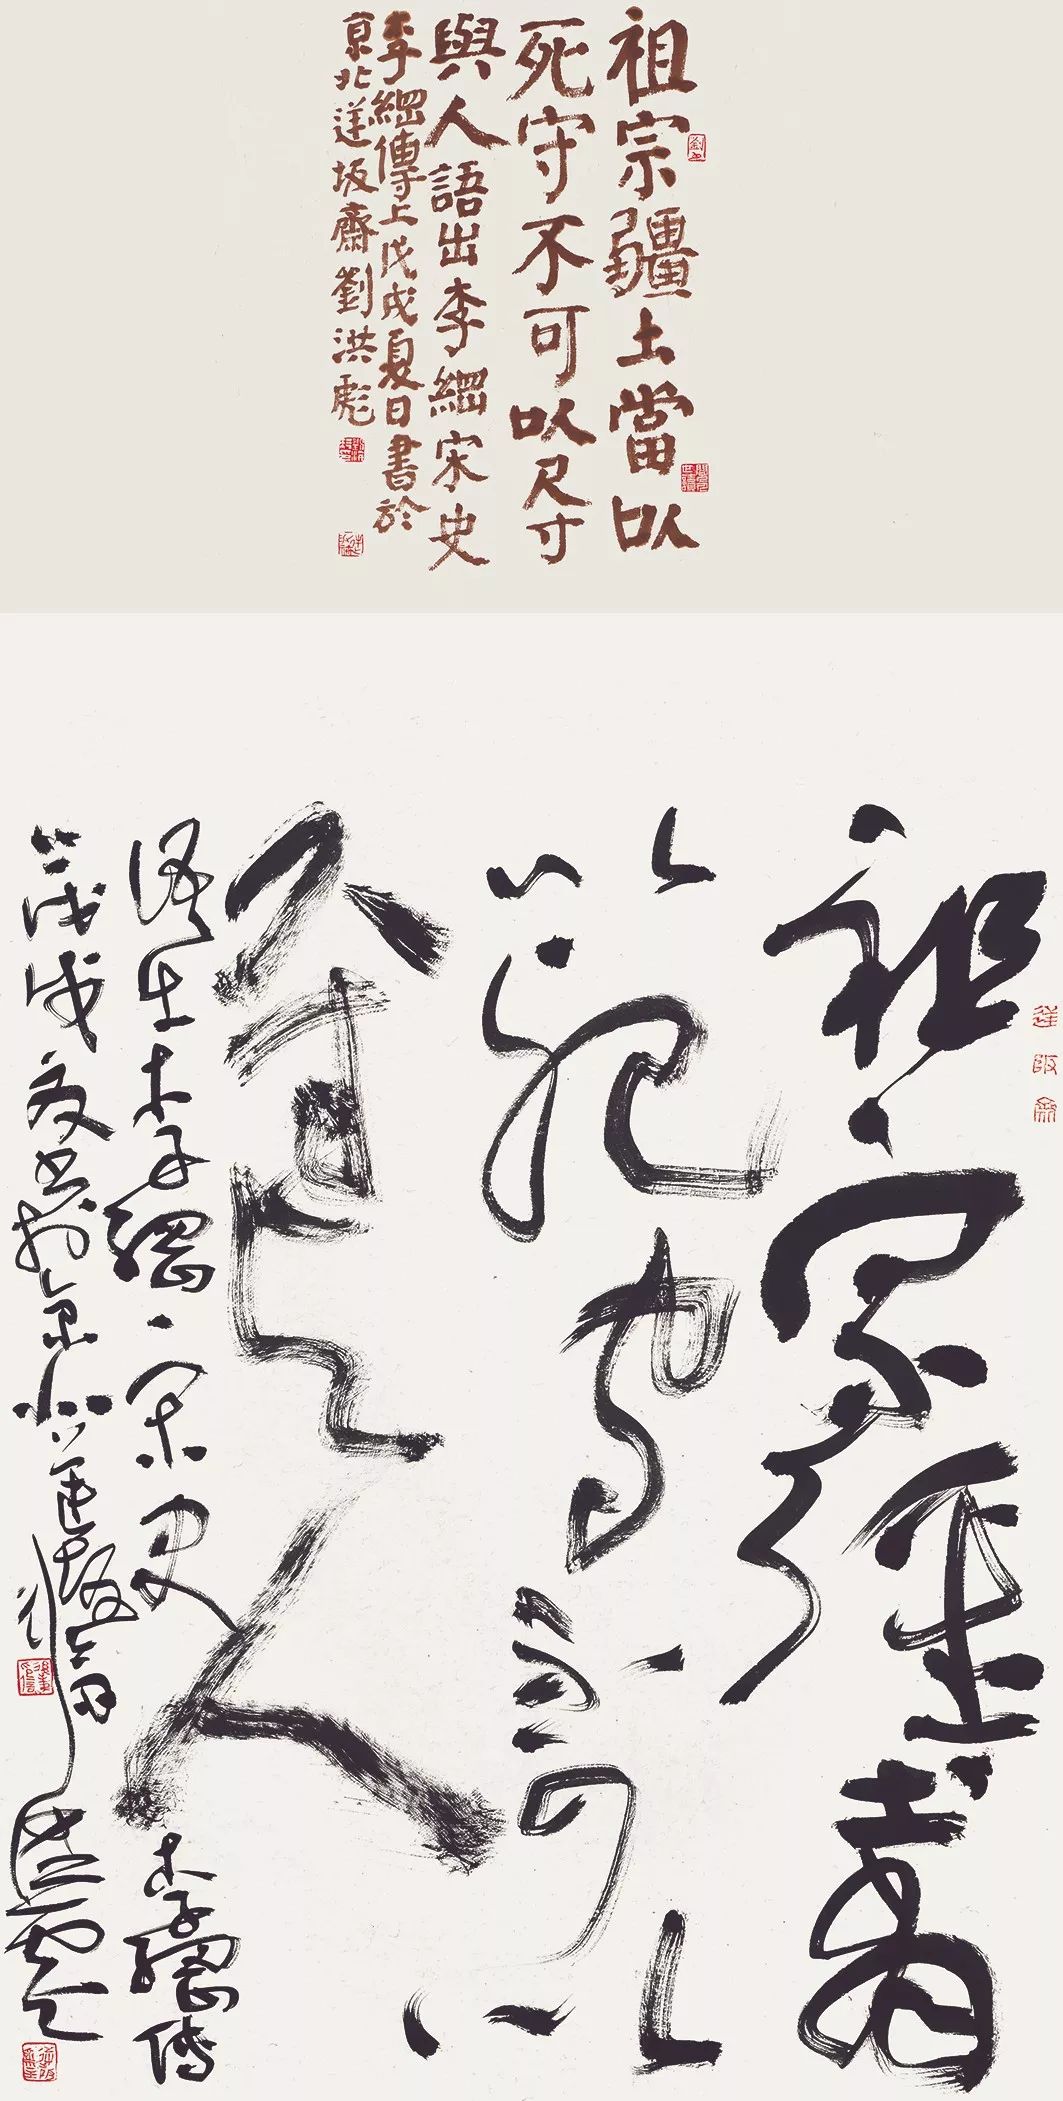 祖宗疆土當以
死守不可以尺寸
與人語出李綱宋史
李綱傳上戊戌夏日書於
京北蓮坂齋劉洪彪
祖宗疆土當
以死守不可以
尺寸與人
語出李綱宋史李綱傳
戊戌夏書於京北